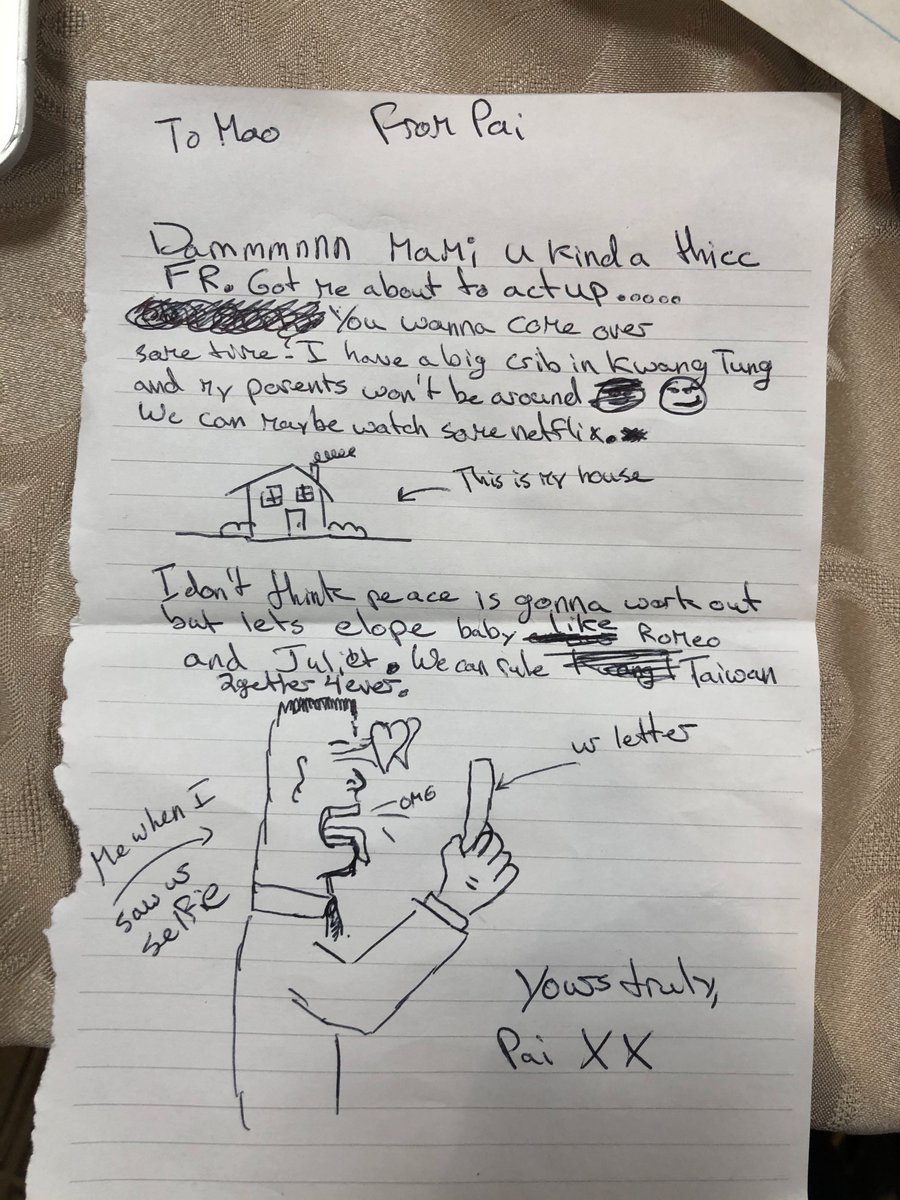 To Mao From Pai
Dammmnnn Mami u kinda thicc
FR. Got me about to act up.....
You wanna come over
some time? I have a big crib in Kwang Tung
and my parents won't be around
We can maybe watch some netflix.
This is my house
I don't think peace is gonna work out
but lets elope baby like Romeo
and Juliet. We can rule Taiwan
2gether 4ever.
ur letter
OMG
Me when I
saw ur
selfie
Yours truly,
Pai XX